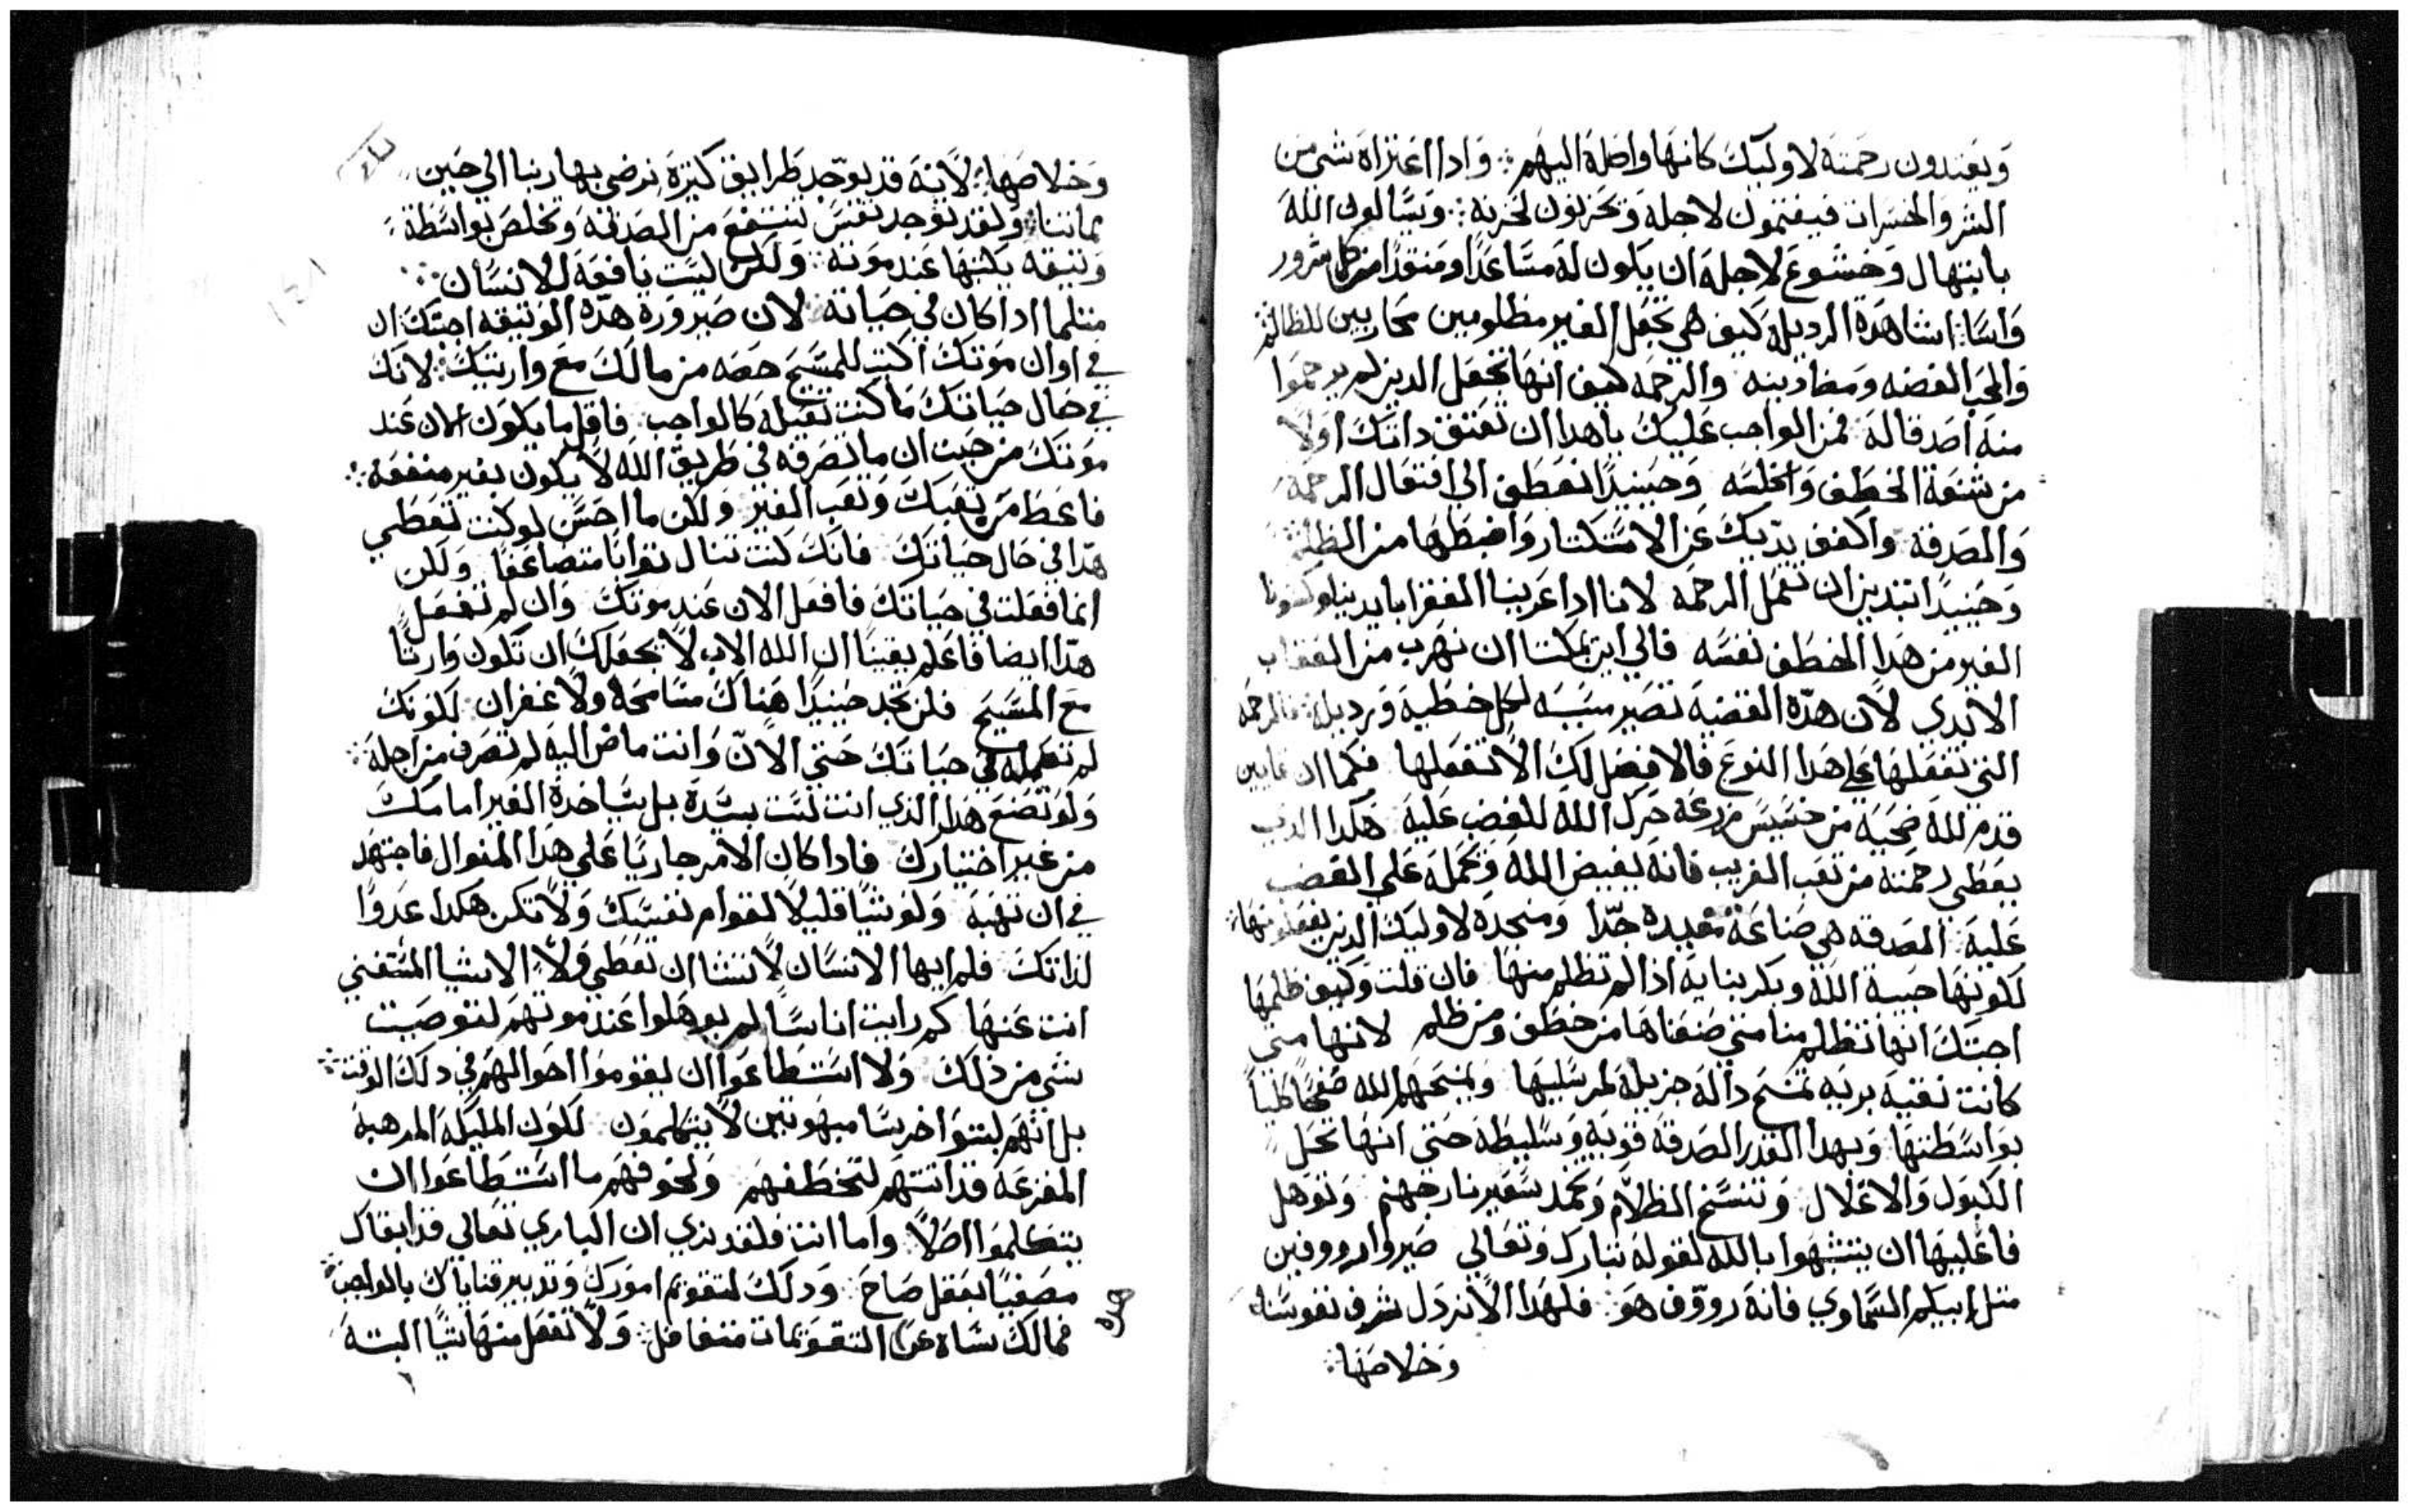 ويعتدون رحمته لاوليك كانها واصلة اليهم ⁘ وادا اعتراه شي من
الشر والخسران فيغتمون لاجله ويحزنون لحزنه ⁘ ويسالون الله
بابتهال وخشوع لاجله ان يكون له مساعدًا ومنقدًا من كل شرور
واسا اشاهده الرديلة كيف هي تجعل الغير مظلومين محاربين للظالم
والمحب الفضه ومضاددينه والرحمه كيف انها تجعل الدين لم يرحموا
منه اصدقا له فمن الواجب عليك ياهدا ان تعتق داتك اولاً
من شنعة الخطف والخلسه وحينيدًا انعطف الي افتعال الرحمة
والصدقة واكفف يديك عن الاستكتار واضبطها من الظلم
وحينيدًا ابتدي ان تعمل الرحمه لاننا ادا عرينا الفقرا بايدينا وكسونا
الغير من هدا الخطف نفسه فالي اين يمكننا ان نهرب من العقاب
الابدي لان هده القضيه تصير سببه لكل خطية ورديلة فالرحمه
التي تفعلها علي هدا النوع فالافضل لك الا تفعلها فكما ان قايين
قدم لله ضحيه من خسيس مزرعه حرك الله للغضب عليه هكدا الدي
يعطي رحمته من تعب القريب فانه يغيض الله ويحمله علي الغضب
عليه الصدقه هي صناعة مفيده جدًا ومنجدة لاوليك الدين يفعلونها ⁘
لكونها حبيبة الله وبكر بنايه ادا لم تظلم منها فان قلت وكيف ظلمها
اجبتك انها تظلم منا متي صنعناها من خطف ومن ظلم لانها متي
كانت نقية بريه تمنح دالة جزيلة لمرسليها ويمنحهم الله صفحًا كليًا
بواسطتها وبهدا القدر الصدقة قوية وسليطة حتي انها تحل
الكبول والاغلال وتنسخ الظلام وتخمد سعير نار جهنم وتوهل
فاعليها ان يتشبهوا بالله لقوله تبارك وتعالي صيروا رووفين
متل ابيكم السماوي فانه رووف هو فلهدا الا نردل شرف نفوسنا
وخلاصها ⁘
وخلاصها ⁘ لانه قد يوجد طرايق كتيرة نرضي بها ربنا الي حين
مماتنا ولقد توجد نفس تنتفع من الصدقة وتخلص بواسطة
وتيقه يكتبها عند موته ولكن ليست نافعة للانسان ⁘
متلما ادا كان في حياته لان صيرورة هده الوتيقه اجبتك ان
في اوان موتك اكتب للمسيح حصه من مالك مع وارتيك لانك
في حال حياتك ما كنت تقبله كالواجب فاقل ما يكون الان عند
موتك من حيت ان ما تصرفه في طريق الله لا يكون بغير منفعة ⁘
فاعط من تعبك وتعب الغير ولكن ما احسن لو كنت تعطي
هدا في حال حياتك فانك كنت تنال توابًا متضاعفًا ولكن
انما فعلت في حياتك فافعل الان عند موتك وان لم تفعل
هدا ايضا فاعلم يقينًا ان الله الاب لا يجعلك ان تكون وارتًا
مع المسيح فلن تجد حينيدًا هناك مسامحة ولا غفران لكونك
لم تعمله في حياتك حتي الان وانت ماض اليه لم تصرف من اجله ⁘
ولو تضع هدا الدي انت لست بسيده بل سياخده الغير امامك
من غير اختيارك فادا كان الامر جاريًا علي هدا المنوال فاجتهد
في ان تهبه ولو شيًا قليلاً لقوام نفسك ولا تكن هكدا عدوًا
لداتك فلم ايها الانسان لا تشا ان تعطي ولا الاشيا المستغني
انت عنها كم رايت اناسًا لم يوهلوا عند موتهم لتوصيت
شي من ذلك ولا استطاعوا ان يقوموا احوالهم في دلك الوقت ⁘
بل انهم لبتوا خرسًا مبهوتين لا يتكلمون لكون المليكه المرهبة
المفزعه قد اتتهم لتخطفهم ولخوفهم ما استطاعوا ان
يتكلموا اصلاً واما انت فلقد تري ان الباري تعالي قد ابقاك
مصغيًا بعقل صاحَ ودلك لتقويم امورك وتدبير قناياك بالواجب ⁘
فمالك نساه عن التقويمات متغافل ولا تفعل منها شيًا البتة